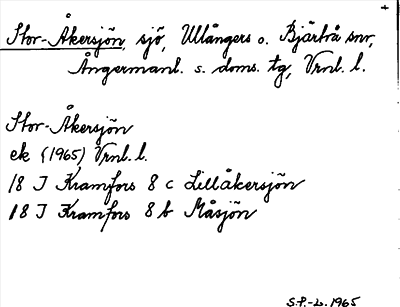 Stor-Åkersjön, sjö, Ullångers o. Bjärtrå snr,
Ångermanl. s. doms. tg, Vrnl. l.
Stor-Åkersjön
ek (1965) Vrnl. l.
18 J Kramfors 8 c Lillåkersjön
18 J Kramfors 8 b Måsjön
S.P.-L. 1965